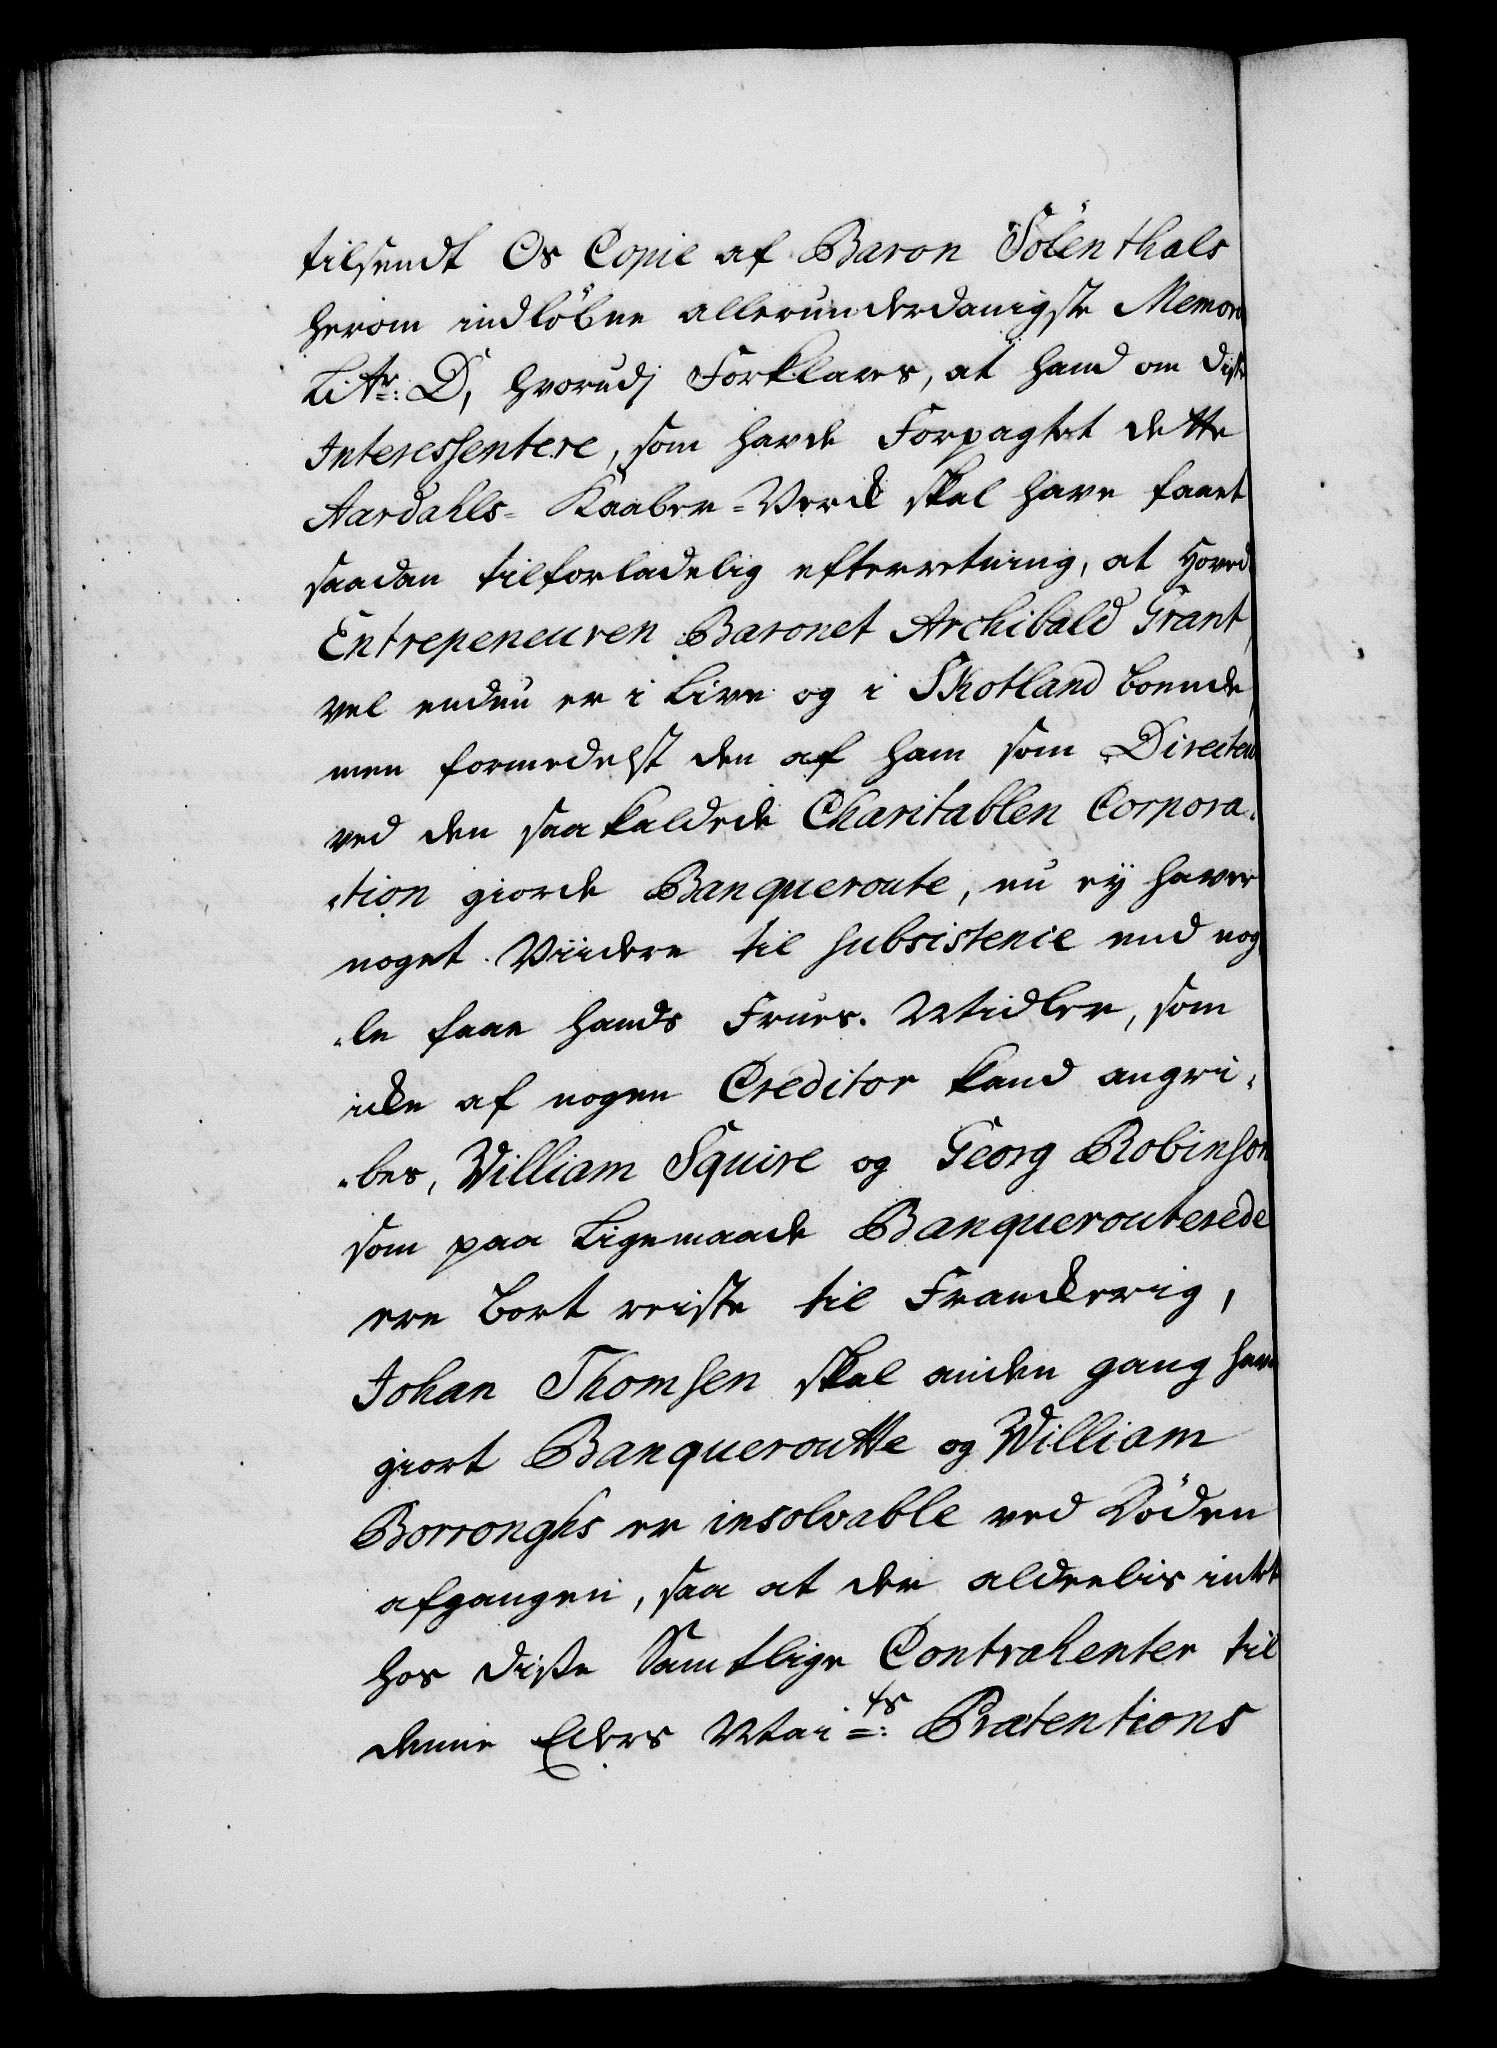 tilsendt Os Copie af Baron Sölenthals
herom indløbne allerunderdanigste Memori
Litr: D, hvorudj Forklares, at hand om disse
Interessentere, som havde Forpagtet dette
Aardahls- Kaaber-Verck skal have faaet
saadan tilforladelig efterretning, at Hoved
Entrepeneuren Baronet Archibald Grant,
vel endnu er i Live og i Skotland boende,
men formedelst den af ham som Directeur
ved den saa kaldede Charitablen Corpora-
-tion giorde Banqueroute, nu ey haver
noget Viidere til subsistence end nog
-le faae hands Frues Midler, som
icke af nogen Creditor kand angri-
-bes, William Squire og Georg Robinson
som paa Ligemaade Banquerouterede
ere bort reiste til Franckerig,
Johan Thomsen skal anden gang have
giort Banqueroutte og William
Borronghs er insolvable ved Døden
afgangen, saa at der aldeelis intet
hos disse Samtlige Contrahenter til
denne Eders Mai=ts: Prætentions